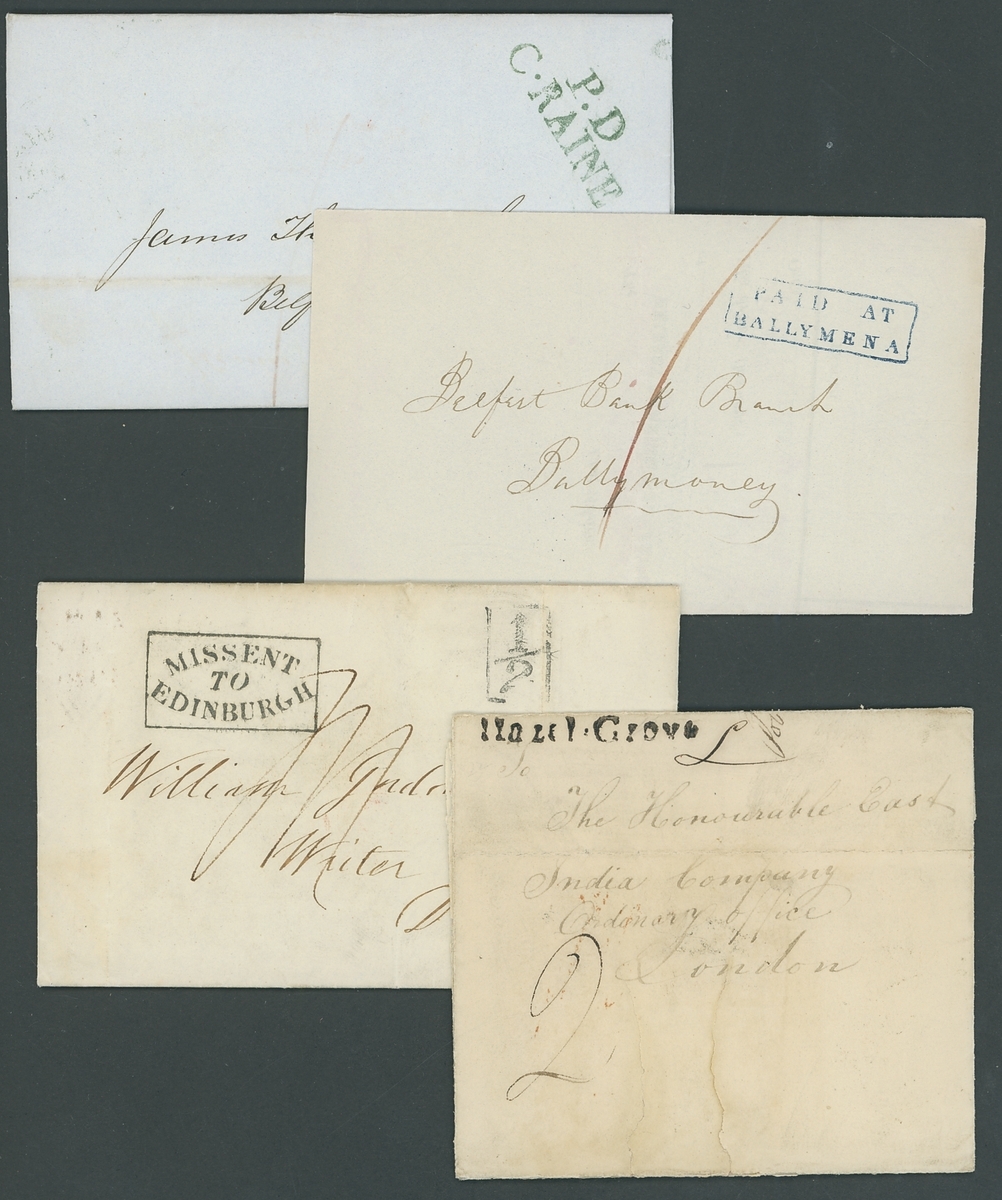 P.D
C·RAINE
James Th
Belf
PAID AT
BALLYMENA
Belfast Bank Branch
Ballymoney.
1/2
MISSENT
TO
EDINBURGH
William
Writer
D
Hazel·Grove
To
The Honourable East
India Company
office
London
2